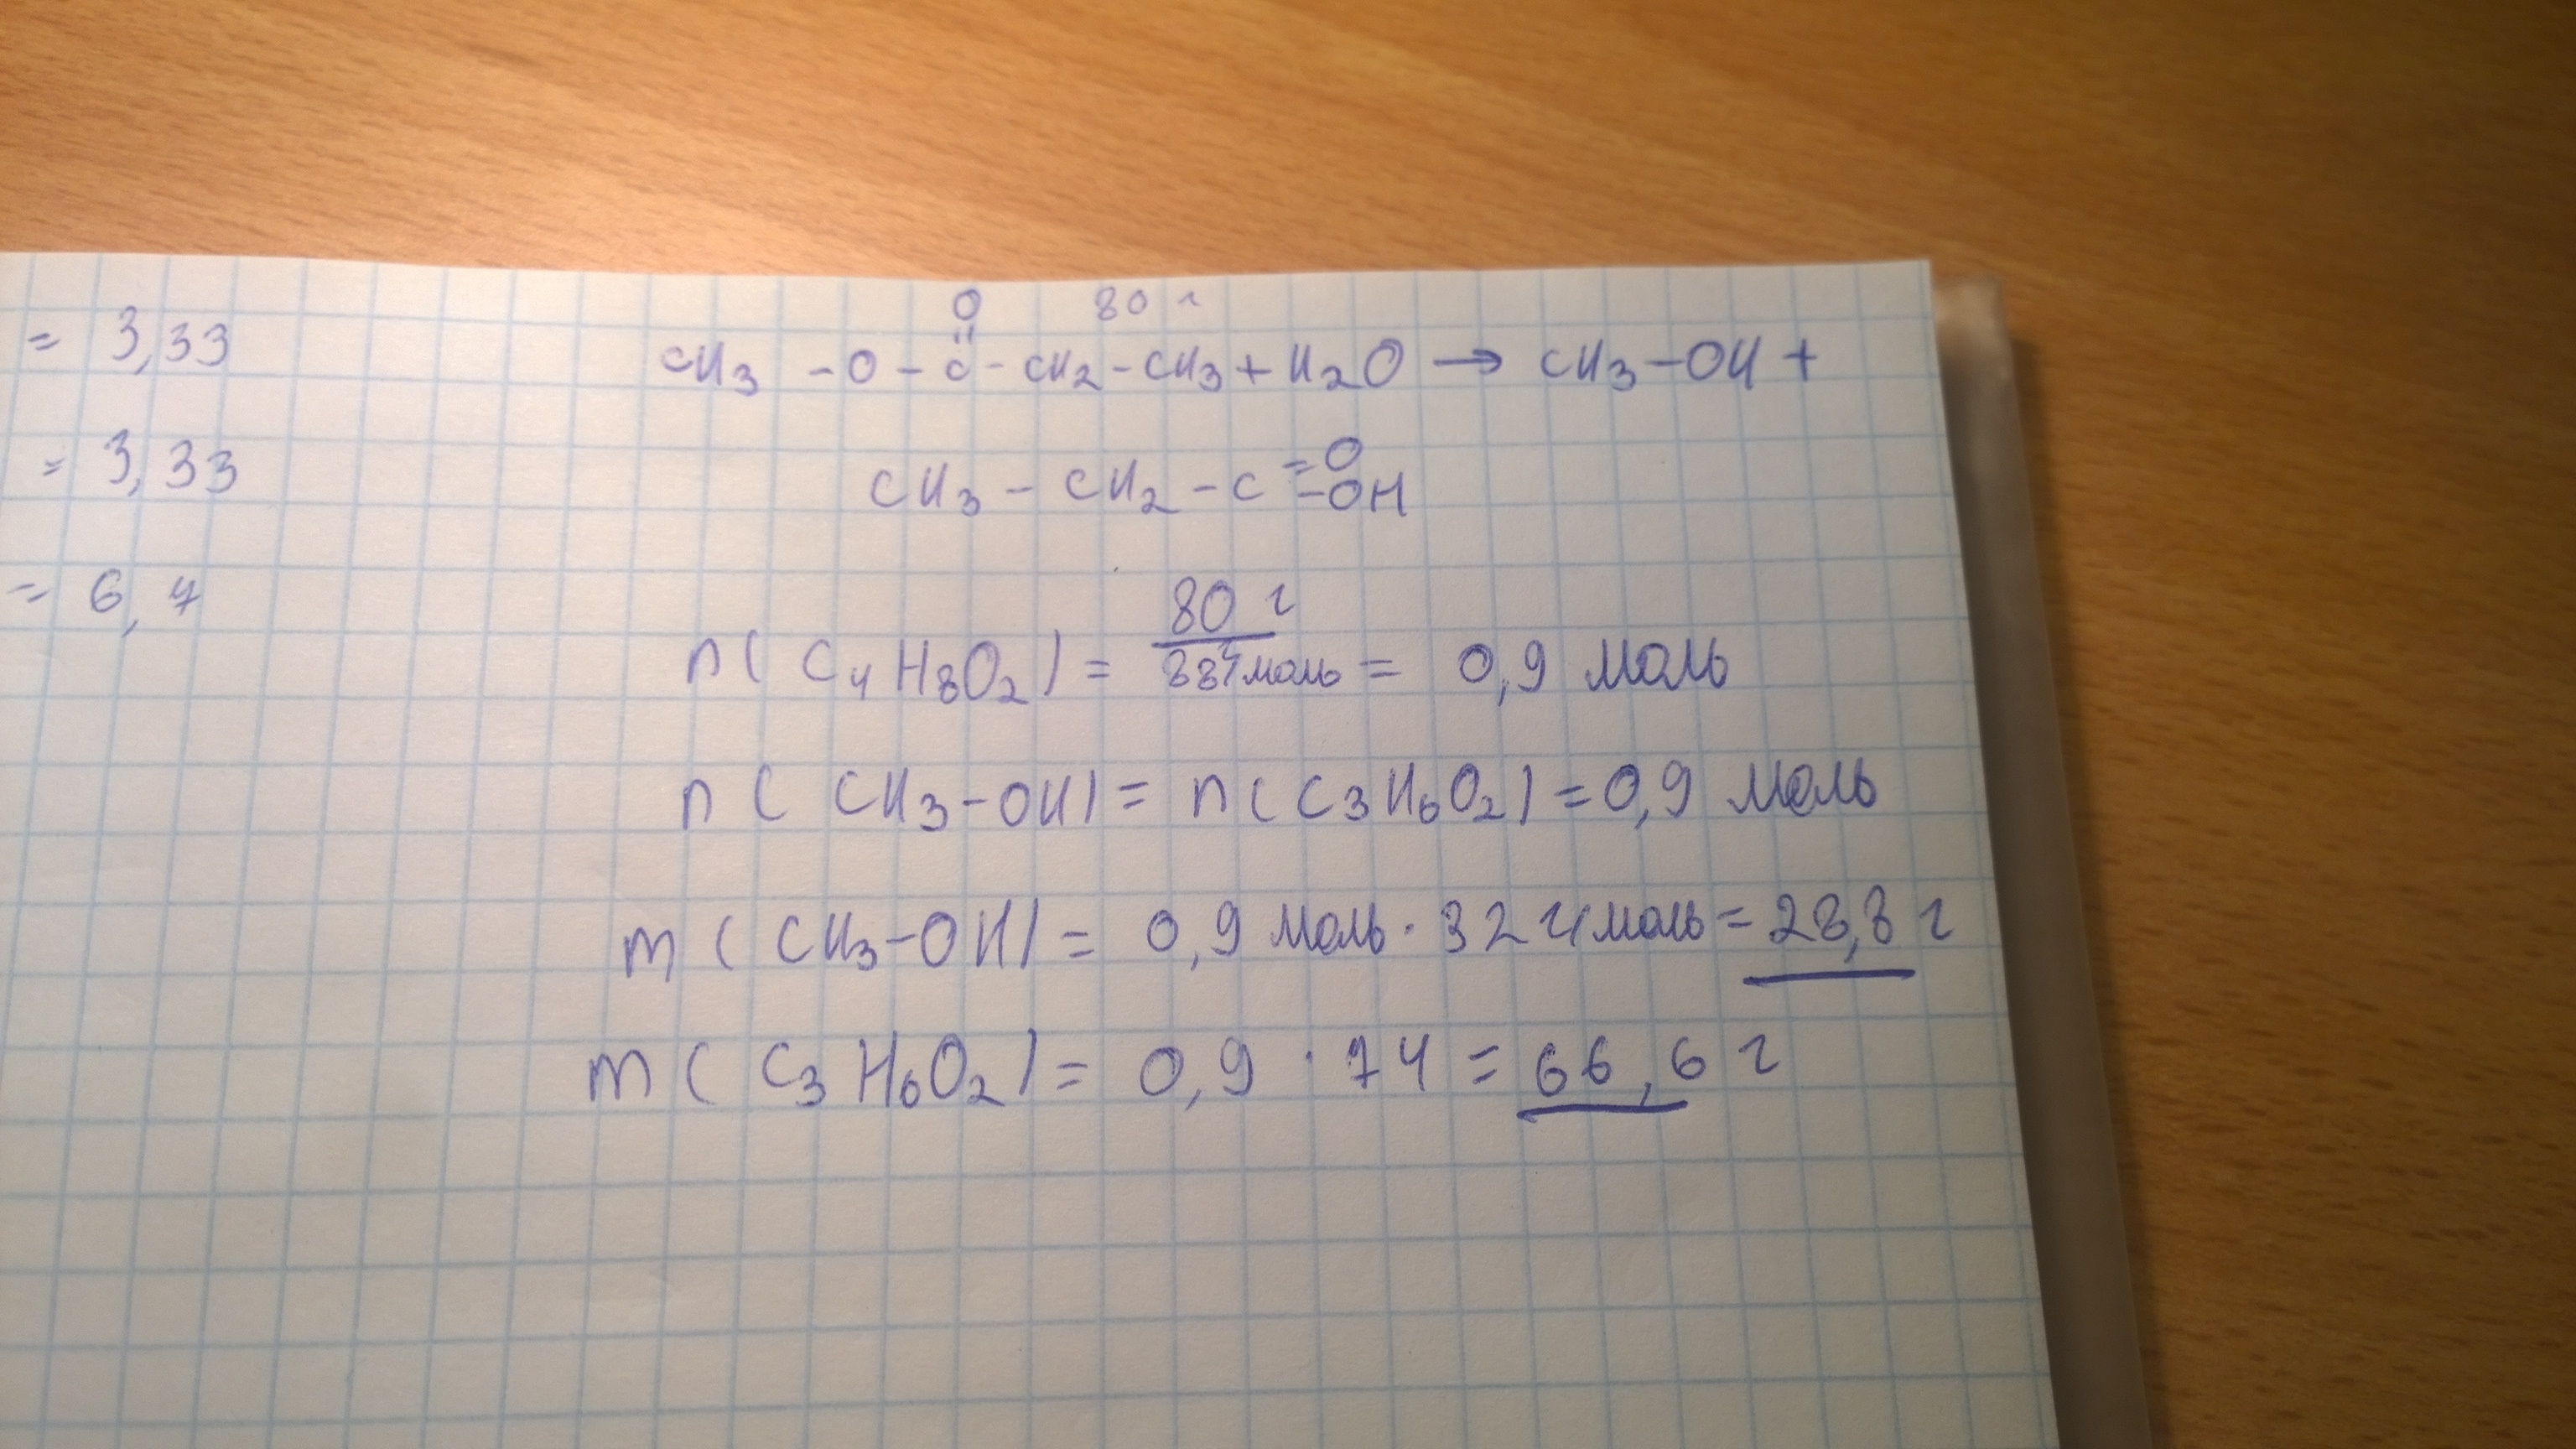 = 3,33
= 3,33
= 6,7
O 80 г
CH3 - O - C - CH2 - CH3 + H2O → CH3 - OH +
CH3 - CH2 - C =O
-OH
80 г
n( C4H8O2) = 88г/моль = 0,9 моль
n ( CH3-OH) = n( C3H6O2) = 0,9 моль
m ( CH3-OH) = 0,9 моль · 32 г/моль = 28,8 г
m ( C3H6O2) = 0,9 · 74 = 66,6 г